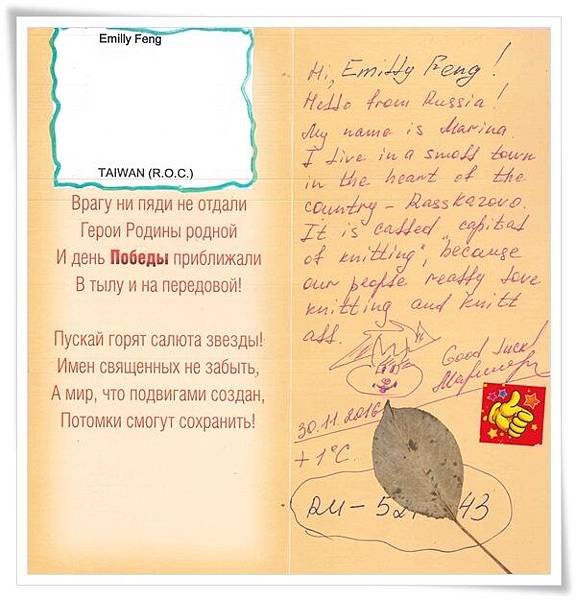 Emilly Feng
TAIWAN (R.O.C.)
Врагу ни пяди не отдали
Герои Родины родной
И день Победы приближали
В тылу и на передовой!
Пускай горят салюта звезды!
Имен священных не забыть,
А мир, что подвигами создан,
Потомки смогут сохранить!
Hi, Emilly Feng!
Hello from Russia!
My name is Marina.
I live in a small town
in the heart of the
country – Rasskazovo.
It is called „capital
of knitting", because
our people really love
knitting and knitt
all.
Good luck!
30.11.2016
+1°C
RU – 52 43